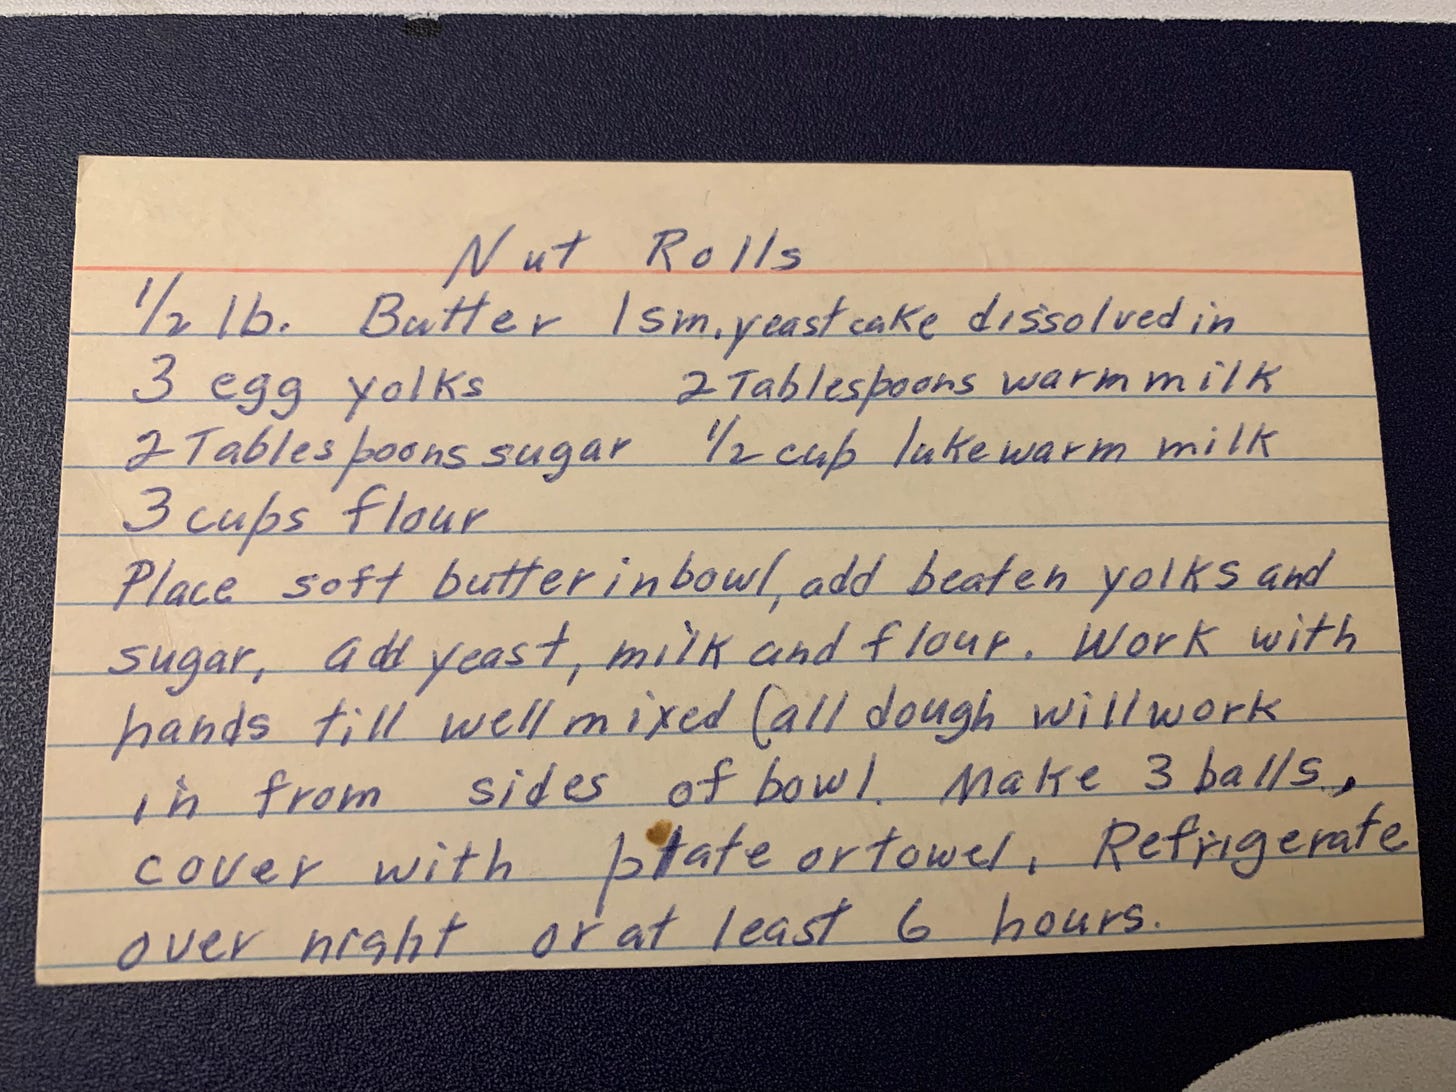 Nut Rolls
1/2 lb. Butter 1 sm. yeast cake dissolved in
3 egg yolks 2 Tablespoons warm milk
2 Tablespoons sugar 1/2 cup lukewarm milk
3 cups flour
Place soft butter in bowl, add beaten yolks and
sugar, add yeast, milk and flour. Work with
hands till well mixed (all dough will work
in from sides of bowl. Make 3 balls.,
cover with plate or towel, Refrigerate
over night or at least 6 hours.